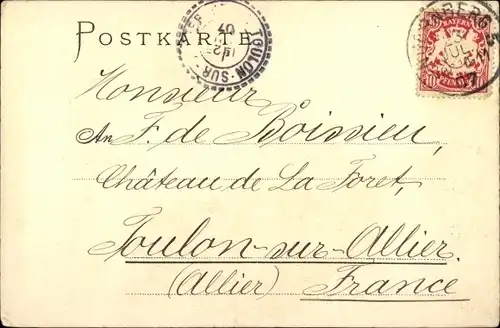 POSTKARTE
TOULON-SUR-
BAYERN
10 PFENNIG 10
Monsieur
An F. de Boissieu,
Château de La Foret,
Toulon-sur-Allier
(Allier) France